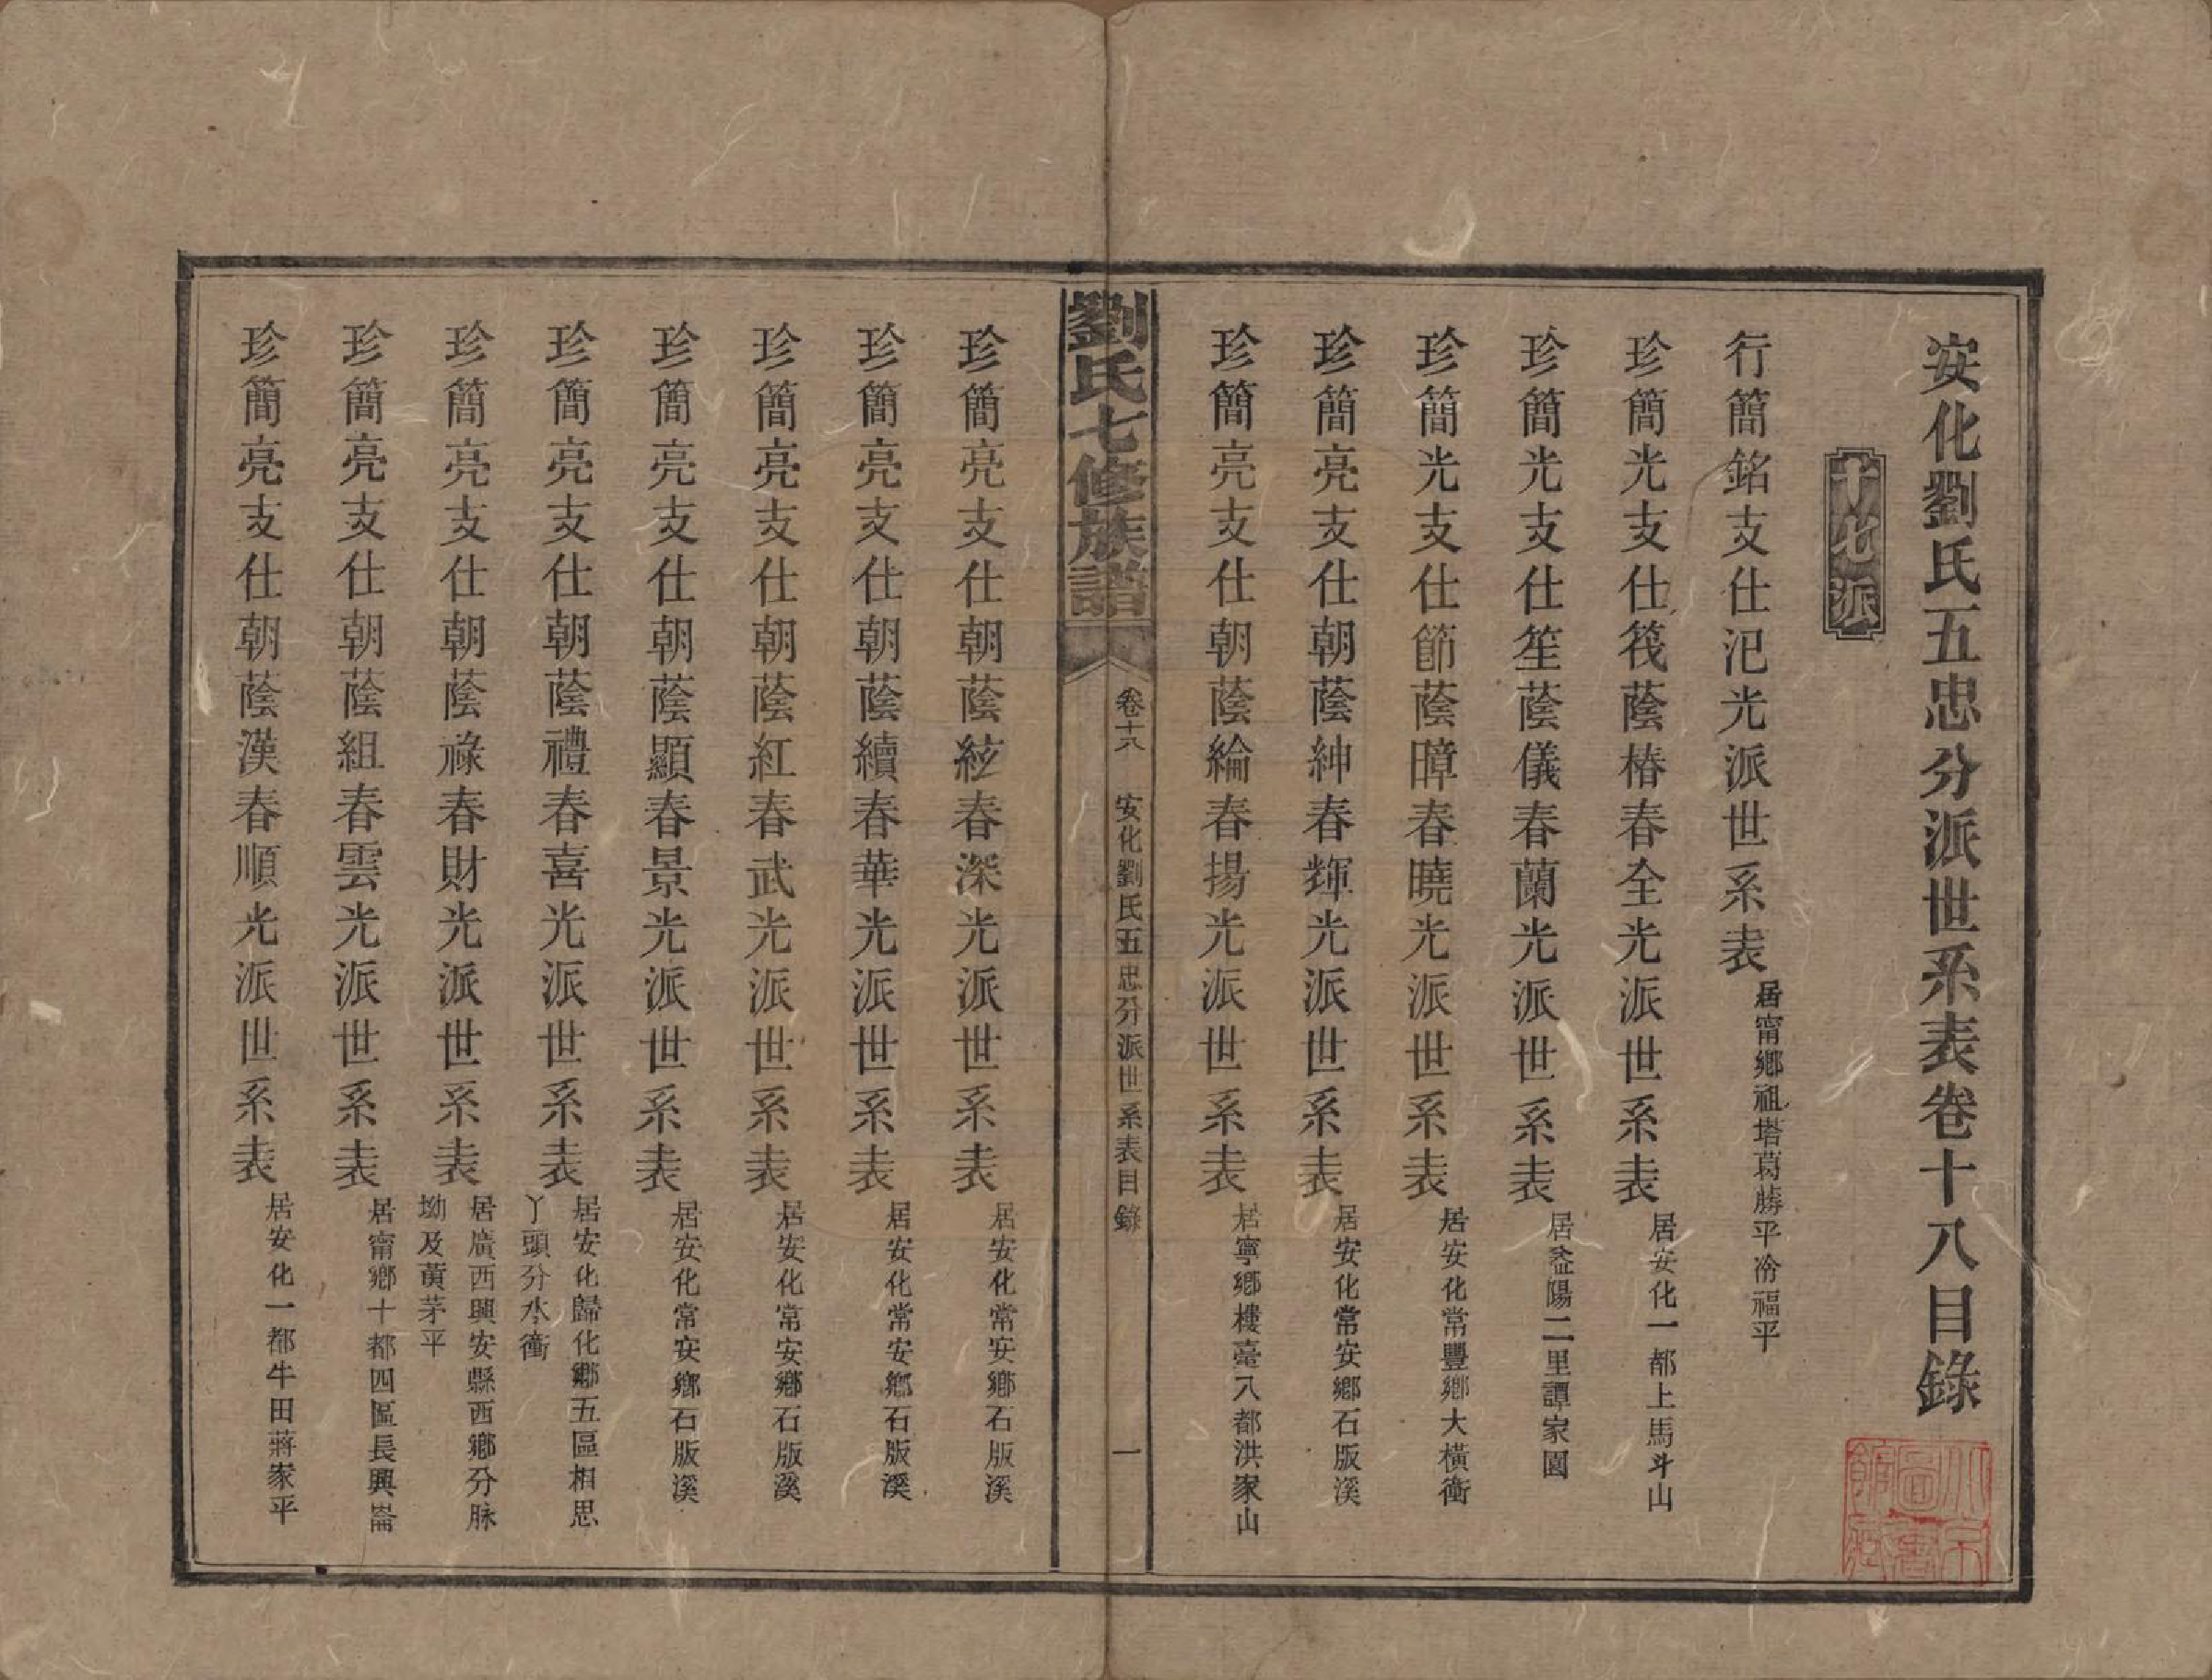 安化劉氏五忠分派世系表卷十八目錄
十七派
行簡銘支仕汜光派世系表 居甯鄉祖塔葛藤平冷福平
珍簡光支仕筏蔭椿春全光派世系表 居安化一都上馬斗山
珍簡光支仕笙蔭儀春蘭光派世系表 居益陽二里譚家園
珍簡光支仕節蔭暲春曉光派世系表 居安化常豐鄉大橫衝
珍簡亮支仕朝蔭紳春輝光派世系表 居安化常安鄉石版溪
珍簡亮支仕朝蔭綸春揚光派世系表 居寧鄉樓臺八都洪家山
劉氏七修族譜 卷十八 安化劉氏五忠分派世系表目錄 一
珍簡亮支仕朝蔭絃春深光派世系表 居安化常安鄉石版溪
珍簡亮支仕朝蔭續春華光派世系表 居安化常安鄉石版溪
珍簡亮支仕朝蔭紅春武光派世系表 居安化常安鄉石版溪
珍簡亮支仕朝蔭顯春景光派世系表 居安化常安鄉石版溪
珍簡亮支仕朝蔭禮春喜光派世系表 居安化歸化鄉五區相思
丫頭分水衝
珍簡亮支仕朝蔭祿春財光派世系表 居廣西興安縣西鄉分脉
坳及黃茅平
珍簡亮支仕朝蔭組春雲光派世系表 居甯鄉十都四區長興崙
珍簡亮支仕朝蔭漢春順光派世系表 居安化一都牛田蔣家平